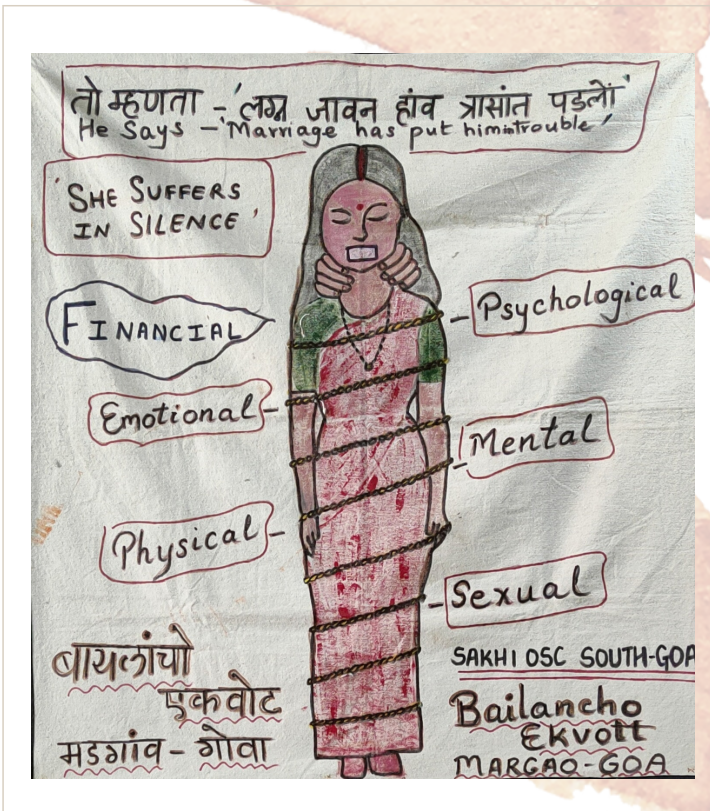 तो म्हणता - 'लग्न जावन हांव त्रासांत पडलों'
He Says - 'Marriage has put him in trouble'
'SHE SUFFERS
IN SILENCE'
FINANCIAL
Psychological
Emotional
Mental
Physical
Sexual
बायलांचो
एकवोट
मडगांव - गोवा
SAKHI OSC SOUTH-GOA
Bailancho
Ekvott
MARGAO-GOA